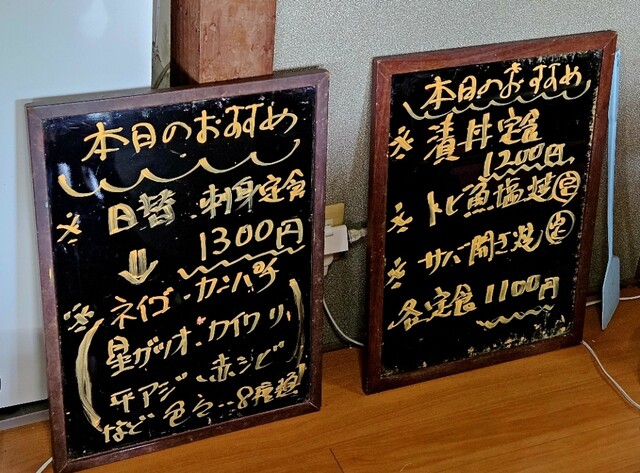 本日のおすすめ
※ 日替 刺身定食
↓ 1300円
※ネイゴ・カンパチ
星ガツオ・カイワリ、
平アジ、赤シビ
など色々、8種類
本日のおすすめ
※ 漬丼定食
1200円
※ トビ魚塩焼定
※ サバ開き焼定
各定食1100円